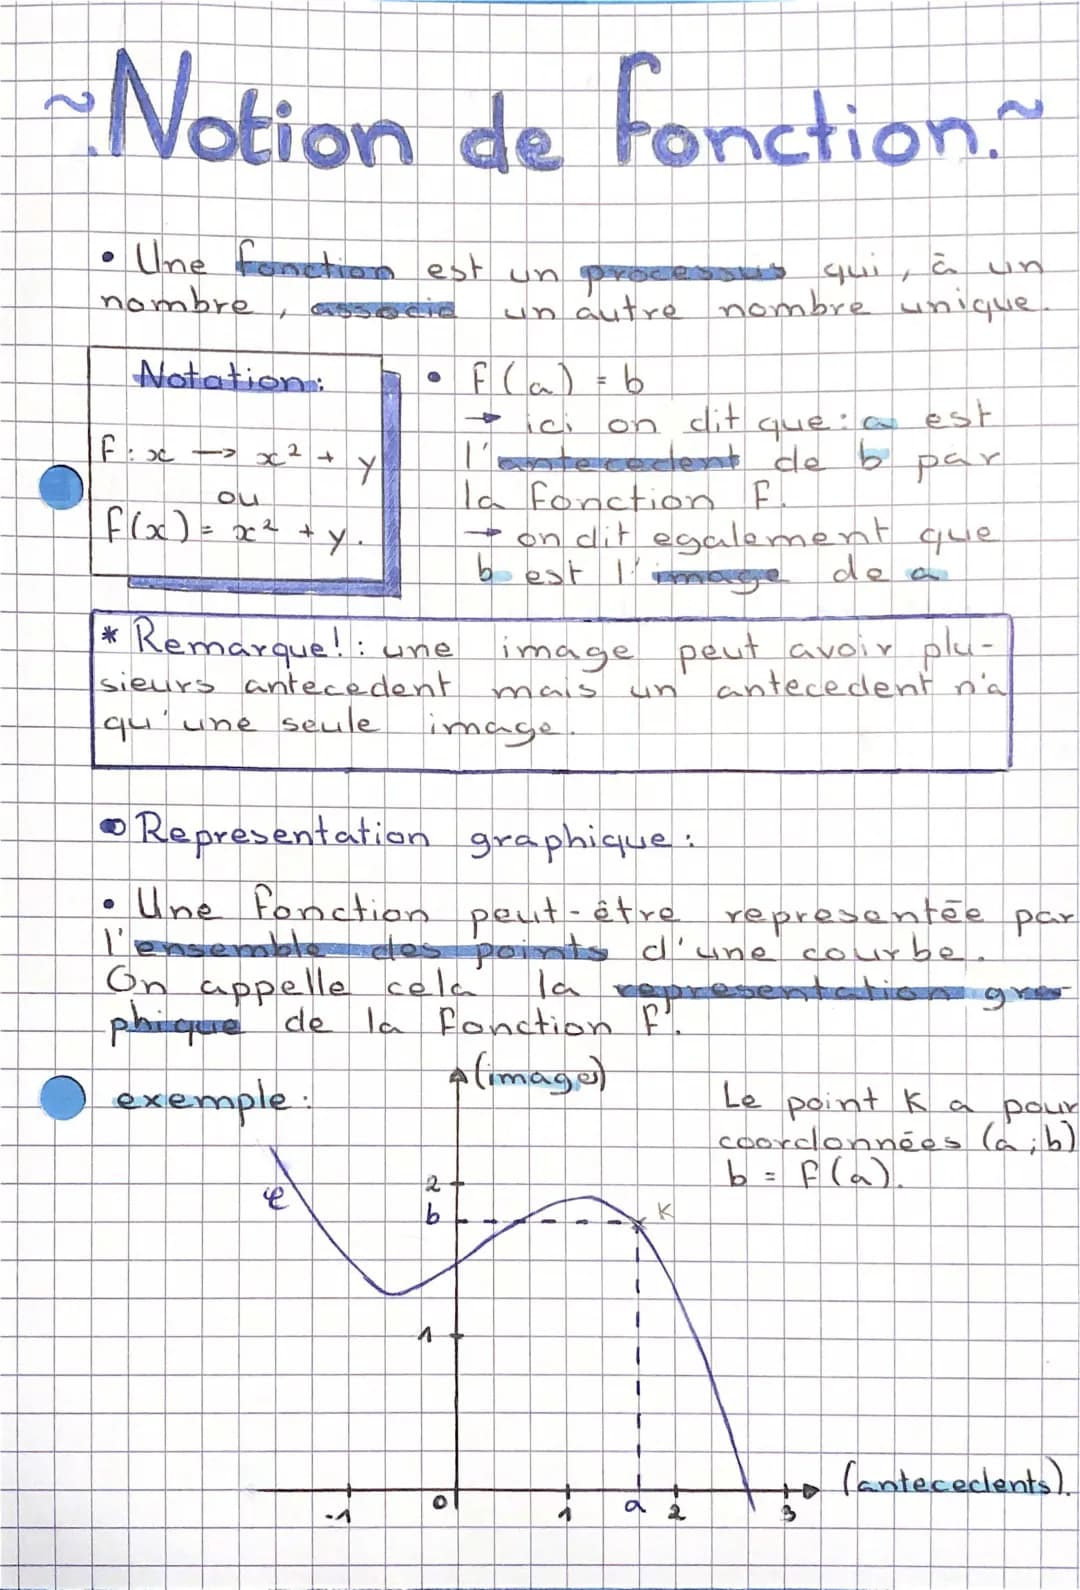 ~Notion de fonction.~
• Une fonction est un processus qui, à un
nombre, associe un autre nombre unique.
Notation:
f: x → x² + y
ou
f(x) = x² + y.
• f(a) = b
→ ici on dit que: a est
l'antecedent de b par
la fonction f.
→ on dit egalement que
b est l'image de a
* Remarque!: une image peut avoir plu-
sieurs antecedent mais un antecedent n'a
qu'une seule image.
Representation graphique:
• Une fonction peut-être representée par
l'ensemble des points d'une courbe.
On appelle cela la representation gra-
phique de la fonction f.
exemple:
(images)
Le point K a pour
coordonnées (a;b)
b = f(a).
2
b
K
1
(antecedents).
-1
0
1
a
2
3